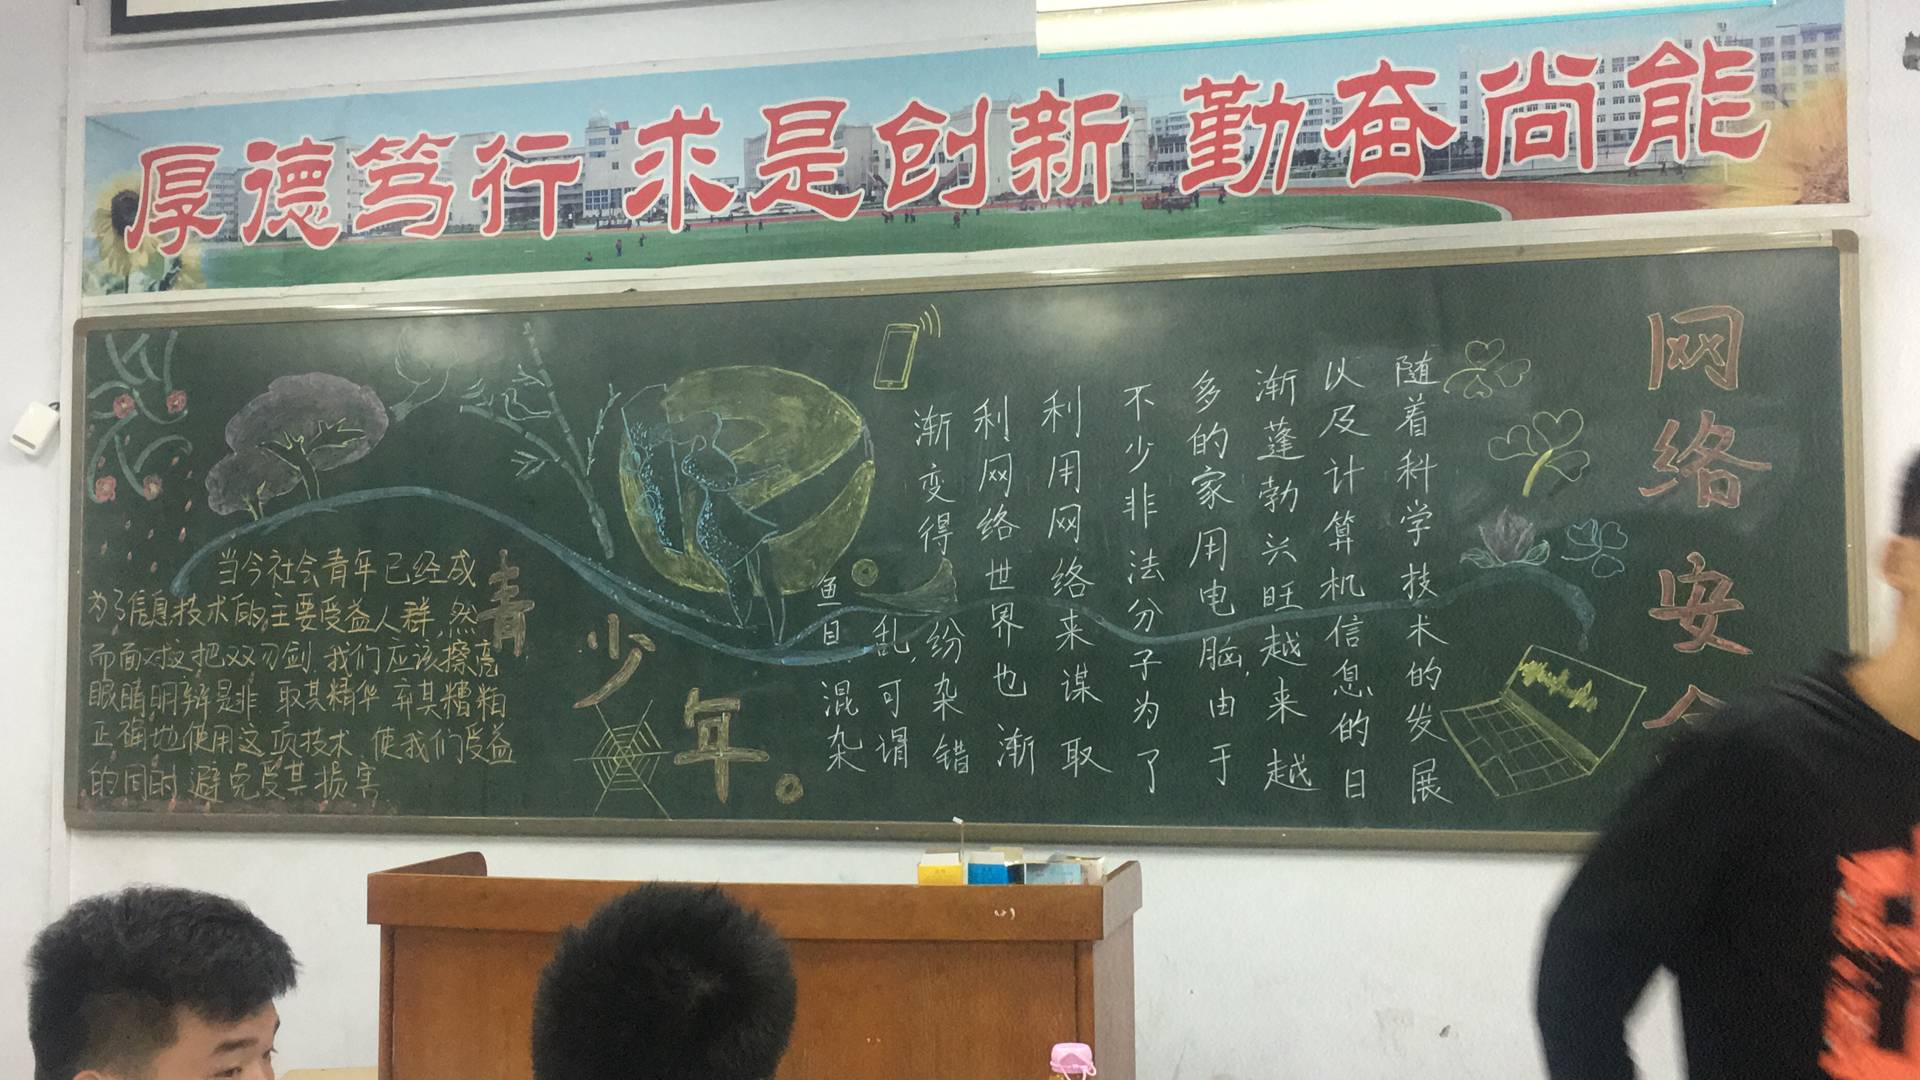 厚德笃行 求是创新 勤奋尚能
网络安全
随着科学技术的发展
以及计算机信息的日
渐蓬勃兴旺越来越
多的家用电脑,由于
不少非法分子为了
利用网络来谋取
利网络世界也渐
渐变得纷杂错
乱,可谓
鱼目混杂
青少年。
当今社会青年已经成
为了信息技术的主要受益人群,然
而面对这把双刃剑,我们应该擦亮
眼睛明辨是非 取其精华 弃其糟粕
正确地使用这项技术,使我们受益
的同时 避免受其损害.